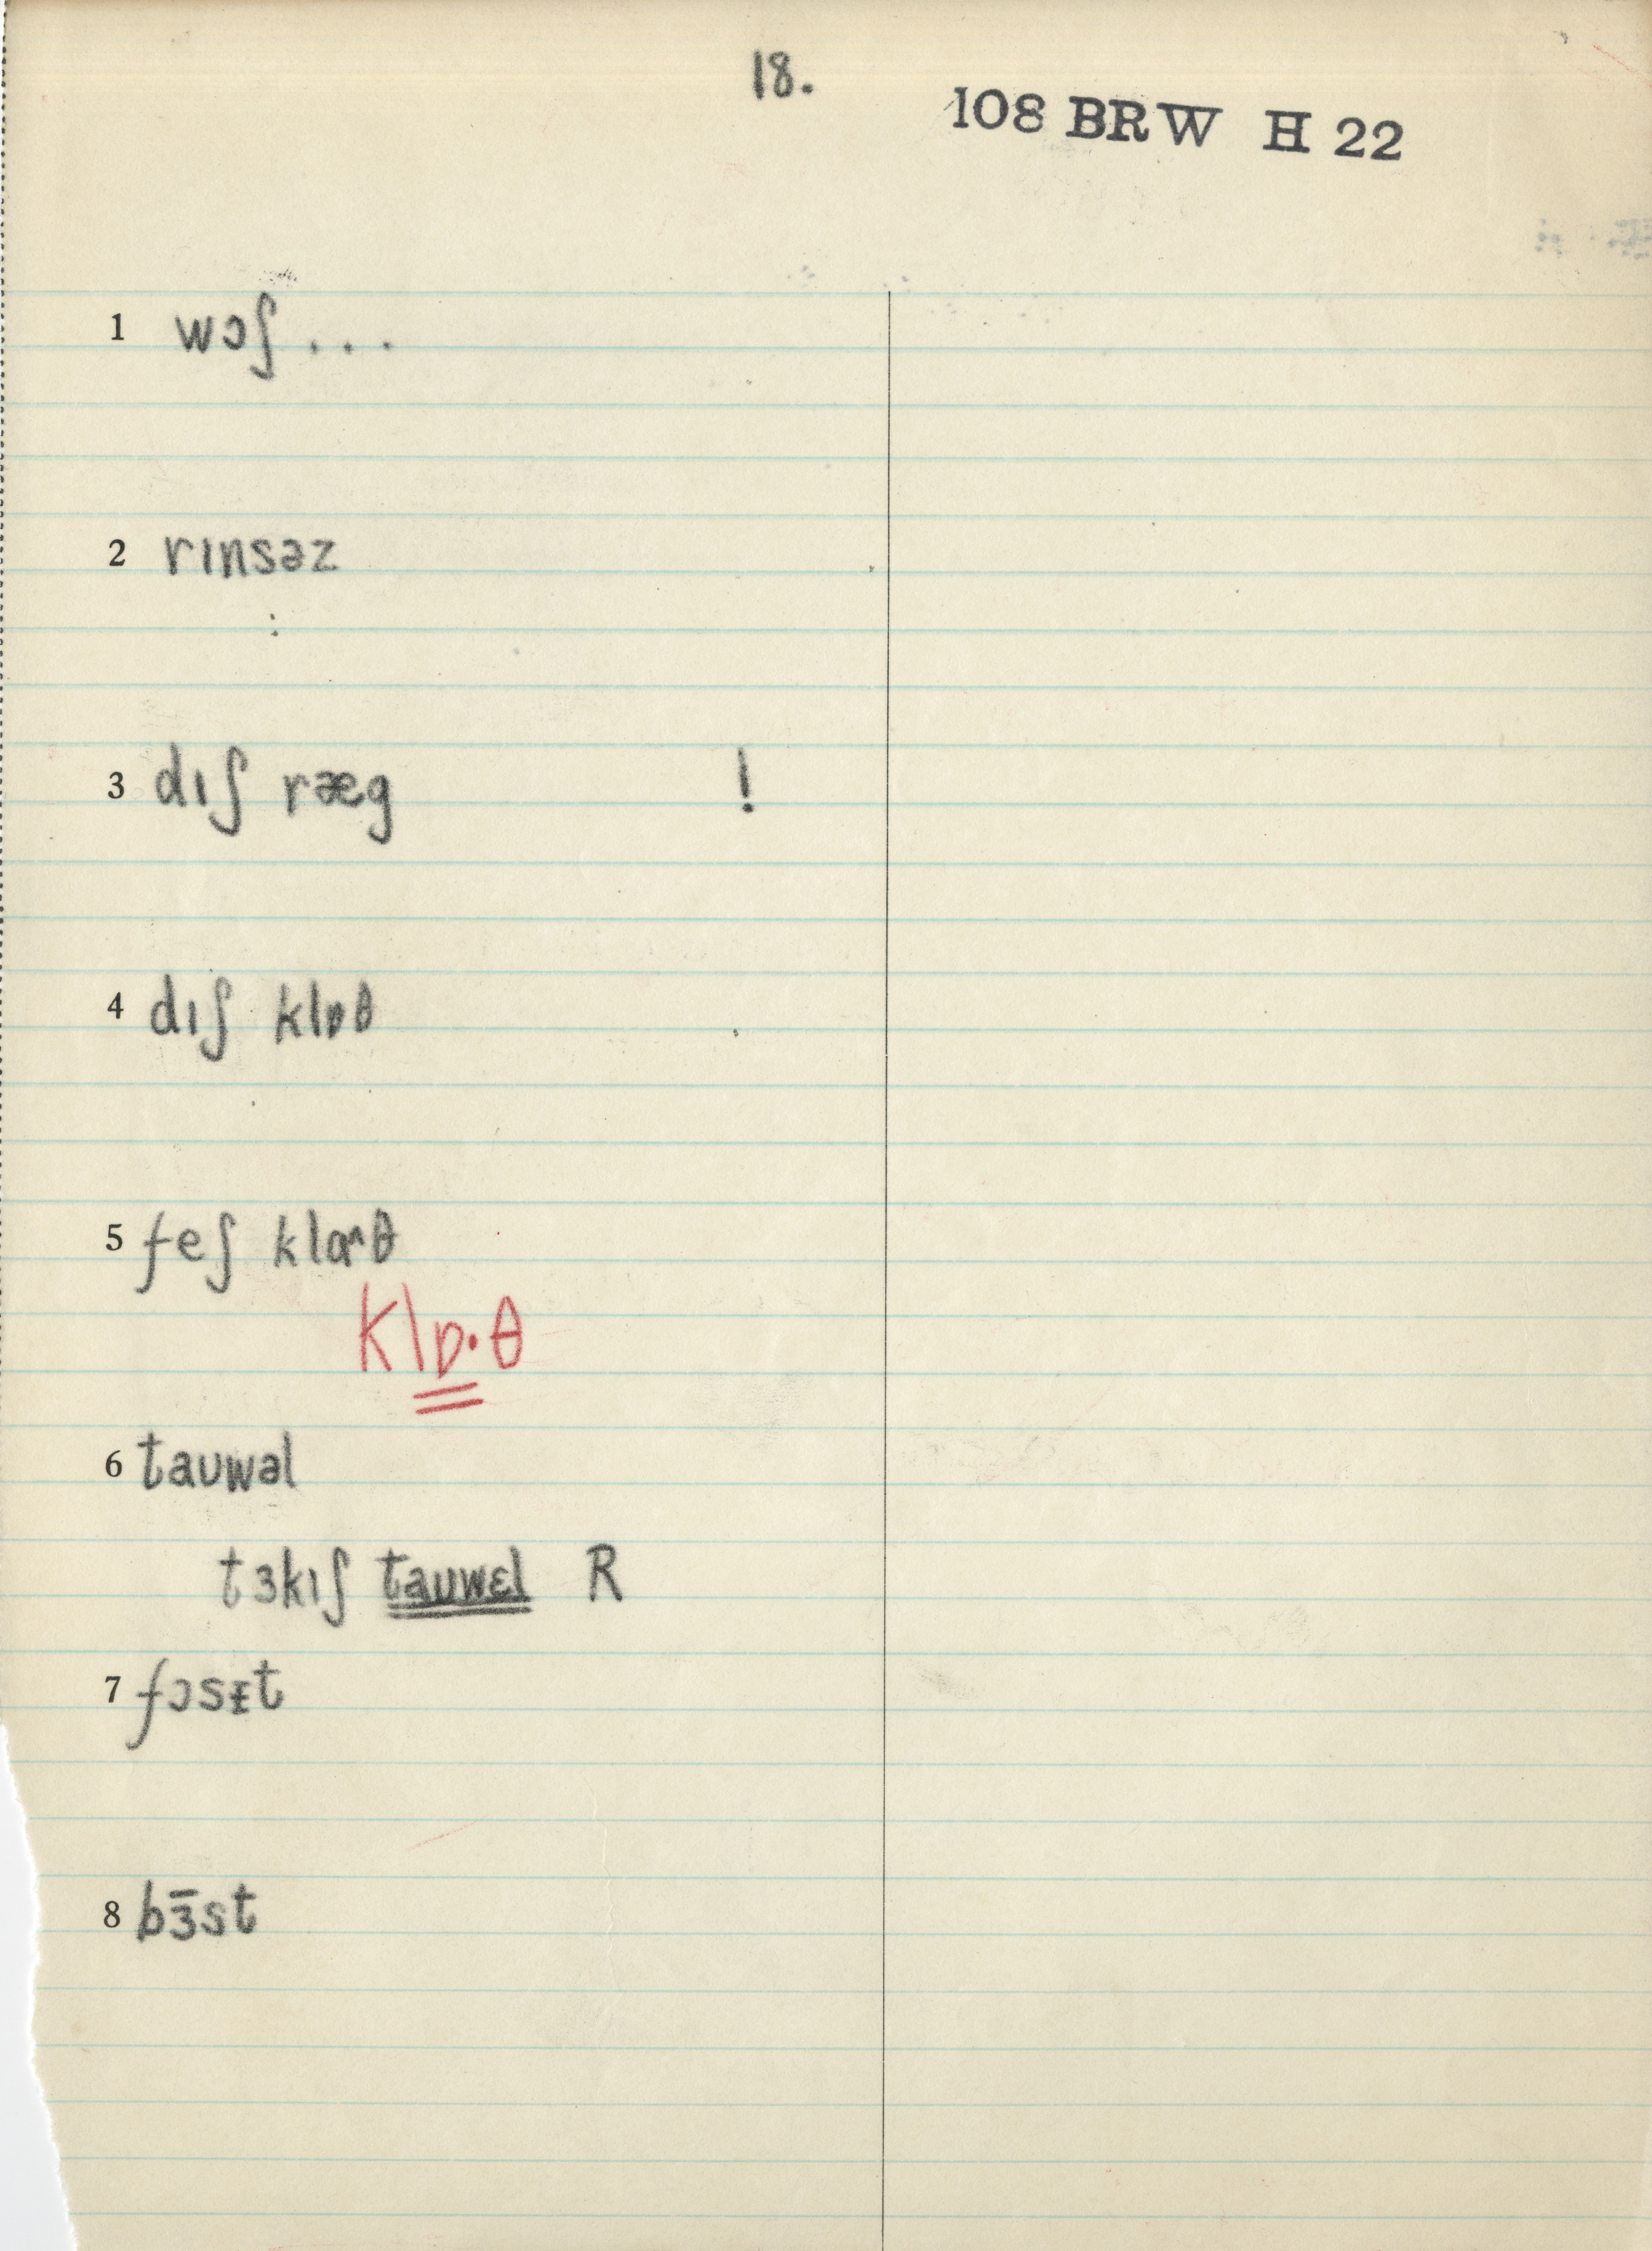 18.
108 BRW H 22
1 wɔʃ ...
2 rɪnsəz
3 dɪʃ ræg !
4 dɪʃ klɒθ
5 feʃ klɑ˞θ
klɒ·θ
6 taʊwəl
tɜkɪʃ taʊwɛl R
7 fɔsᵻt
8 bɜ̄st